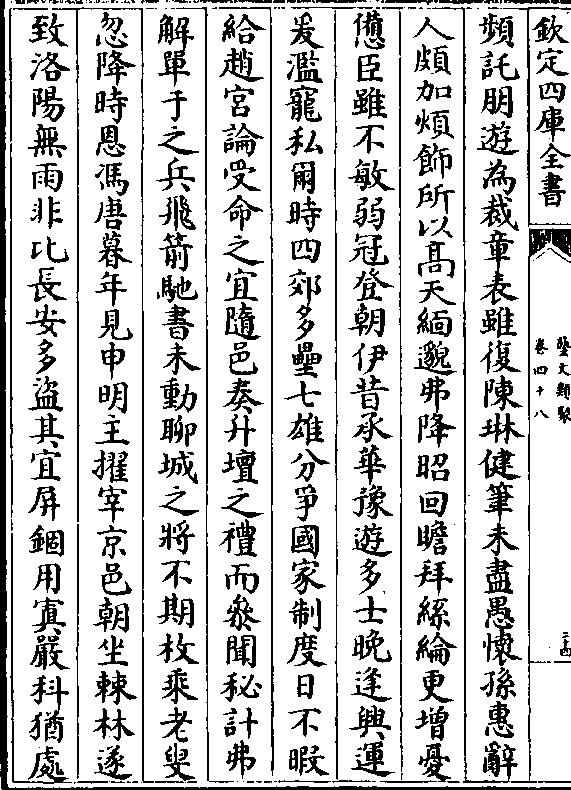 欽定四庫全書
藝文類聚
卷四十八
二十四
頻託朋遊為裁章表雖復陳琳健筆未盡愚懷孫惠辭
人頗加煩飾所以髙天緬邈弗降昭回瞻拜絲綸更增憂
憊臣雖不敏弱冠登朝伊昔承華豫遊多士晚逢興運
爰濫寵私爾時四郊多壘七雄分爭國家制度日不暇
給趙宮論受命之宜隨邑奏升壇之禮而叅聞秘計弗
解單于之兵飛箭馳書未動聊城之將不期枚乘老叟
忽降時恩馮唐暮年見申明主擢宰京邑朝坐棘林遂
致洛陽無雨非比長安多盜其宜屏錮用寘嚴科猶處